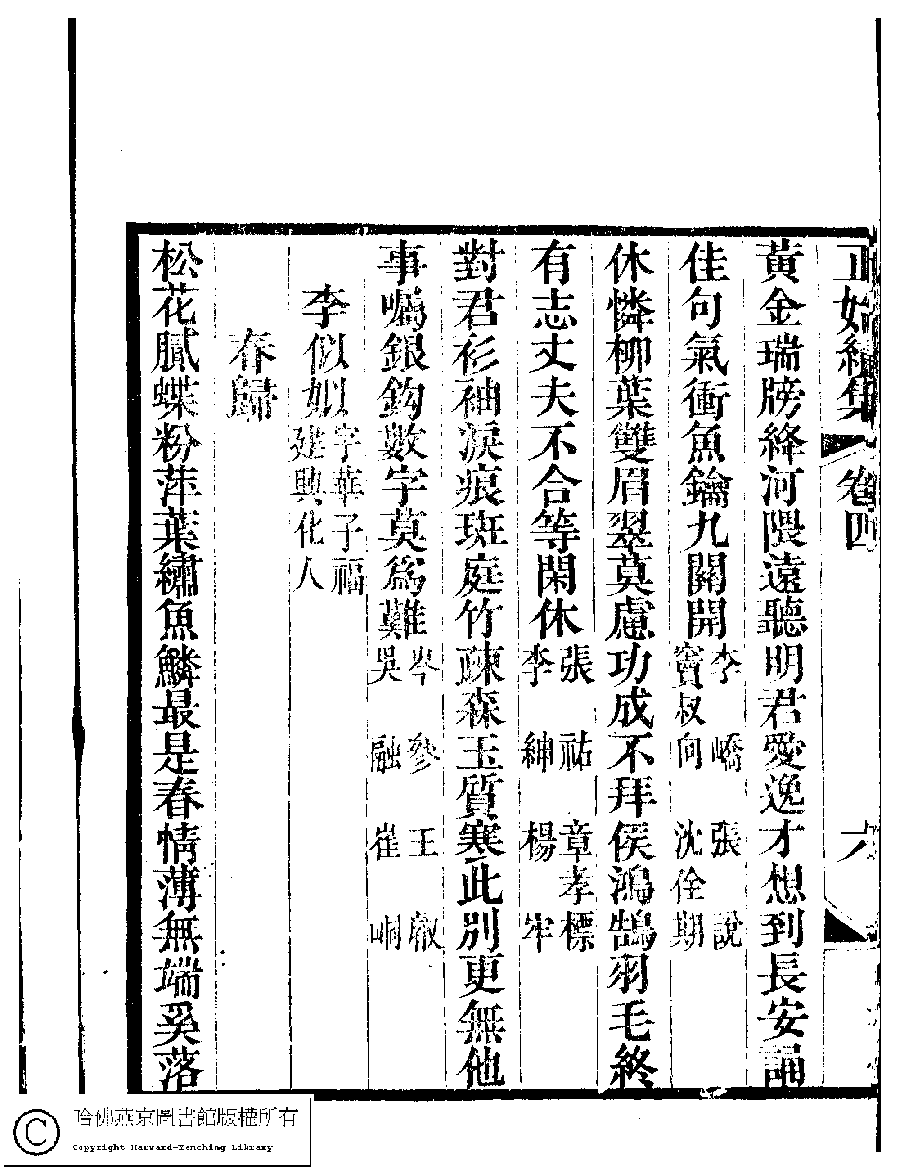 正始續集 卷四 六
黃金瑞牓絳河隈遠聽明君愛逸才想到長安誦
佳句氣衝魚鑰九關開李嶠張說竇叔向沈佺期
休憐柳葉雙眉翠莫慮功成不拜侯鴻鵠羽毛終
有志丈夫不合等閑休張祜章孝標李紳楊牢
對君衫袖淚痕斑庭竹疎森玉質寒此別更無他
事囑銀鈎數字莫為難岑參王轂吳融崔峒
李似姒字華子福建興化人
春歸
松花膩蝶粉萍葉繡魚鱗最是春情薄無端奚落
哈佛燕京圖書館版權所有
Copyright Harvard-Yenching Library